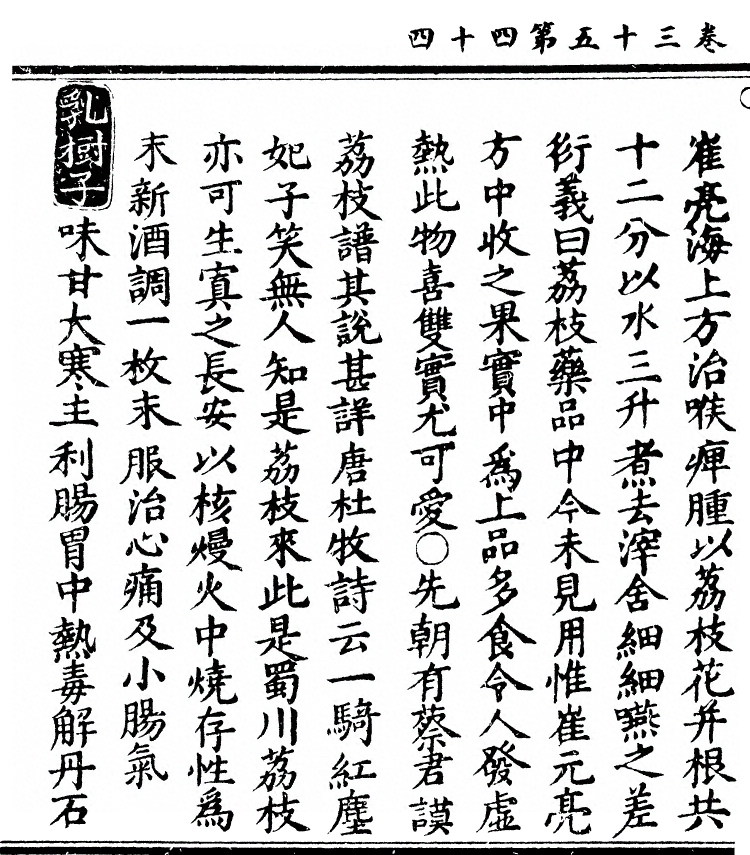 卷三十五第四十四
崔亮海上方治喉痺腫以荔枝花并根共
十二分以水三升煮去滓含細細嚥之差
衍義曰荔枝藥品中今未見用惟崔元亮
方中收之果實中為上品多食令人發虛
熱此物喜雙實尤可愛○先朝有蔡君謨
荔枝譜其說甚詳唐杜牧詩云一騎紅塵
妃子笑無人知是荔枝來此是蜀川荔枝
亦可生寘之長安以核熳火中燒存性為
末新酒調一枚末服治心痛及小腸氣
乳樹子味甘大寒主利腸胃中熱毒解丹石